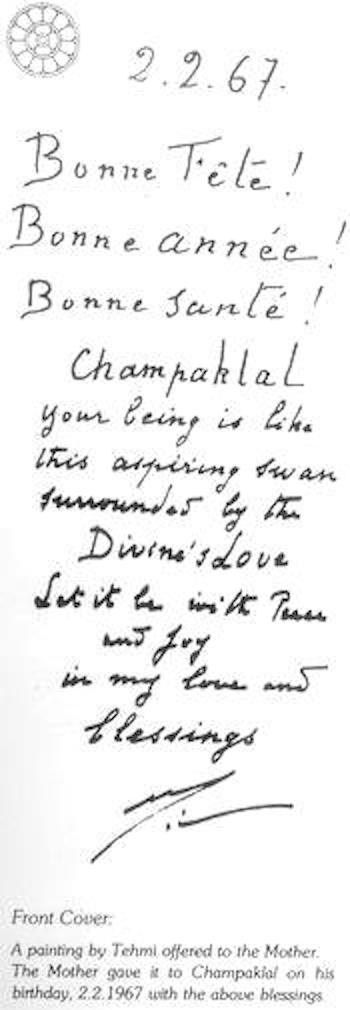 2.2.67.
Bonne Fête!
Bonne année!
Bonne santé!
Champaklal
your being is like
this aspiring swan
surrounded by the
Divine's Love
Let it be with Peace
and Joy
in my love and
blessings
Front Cover:
A painting by Tehmi offered to the Mother.
The Mother gave it to Champaklal on his
birthday, 2.2.1967 with the above blessings